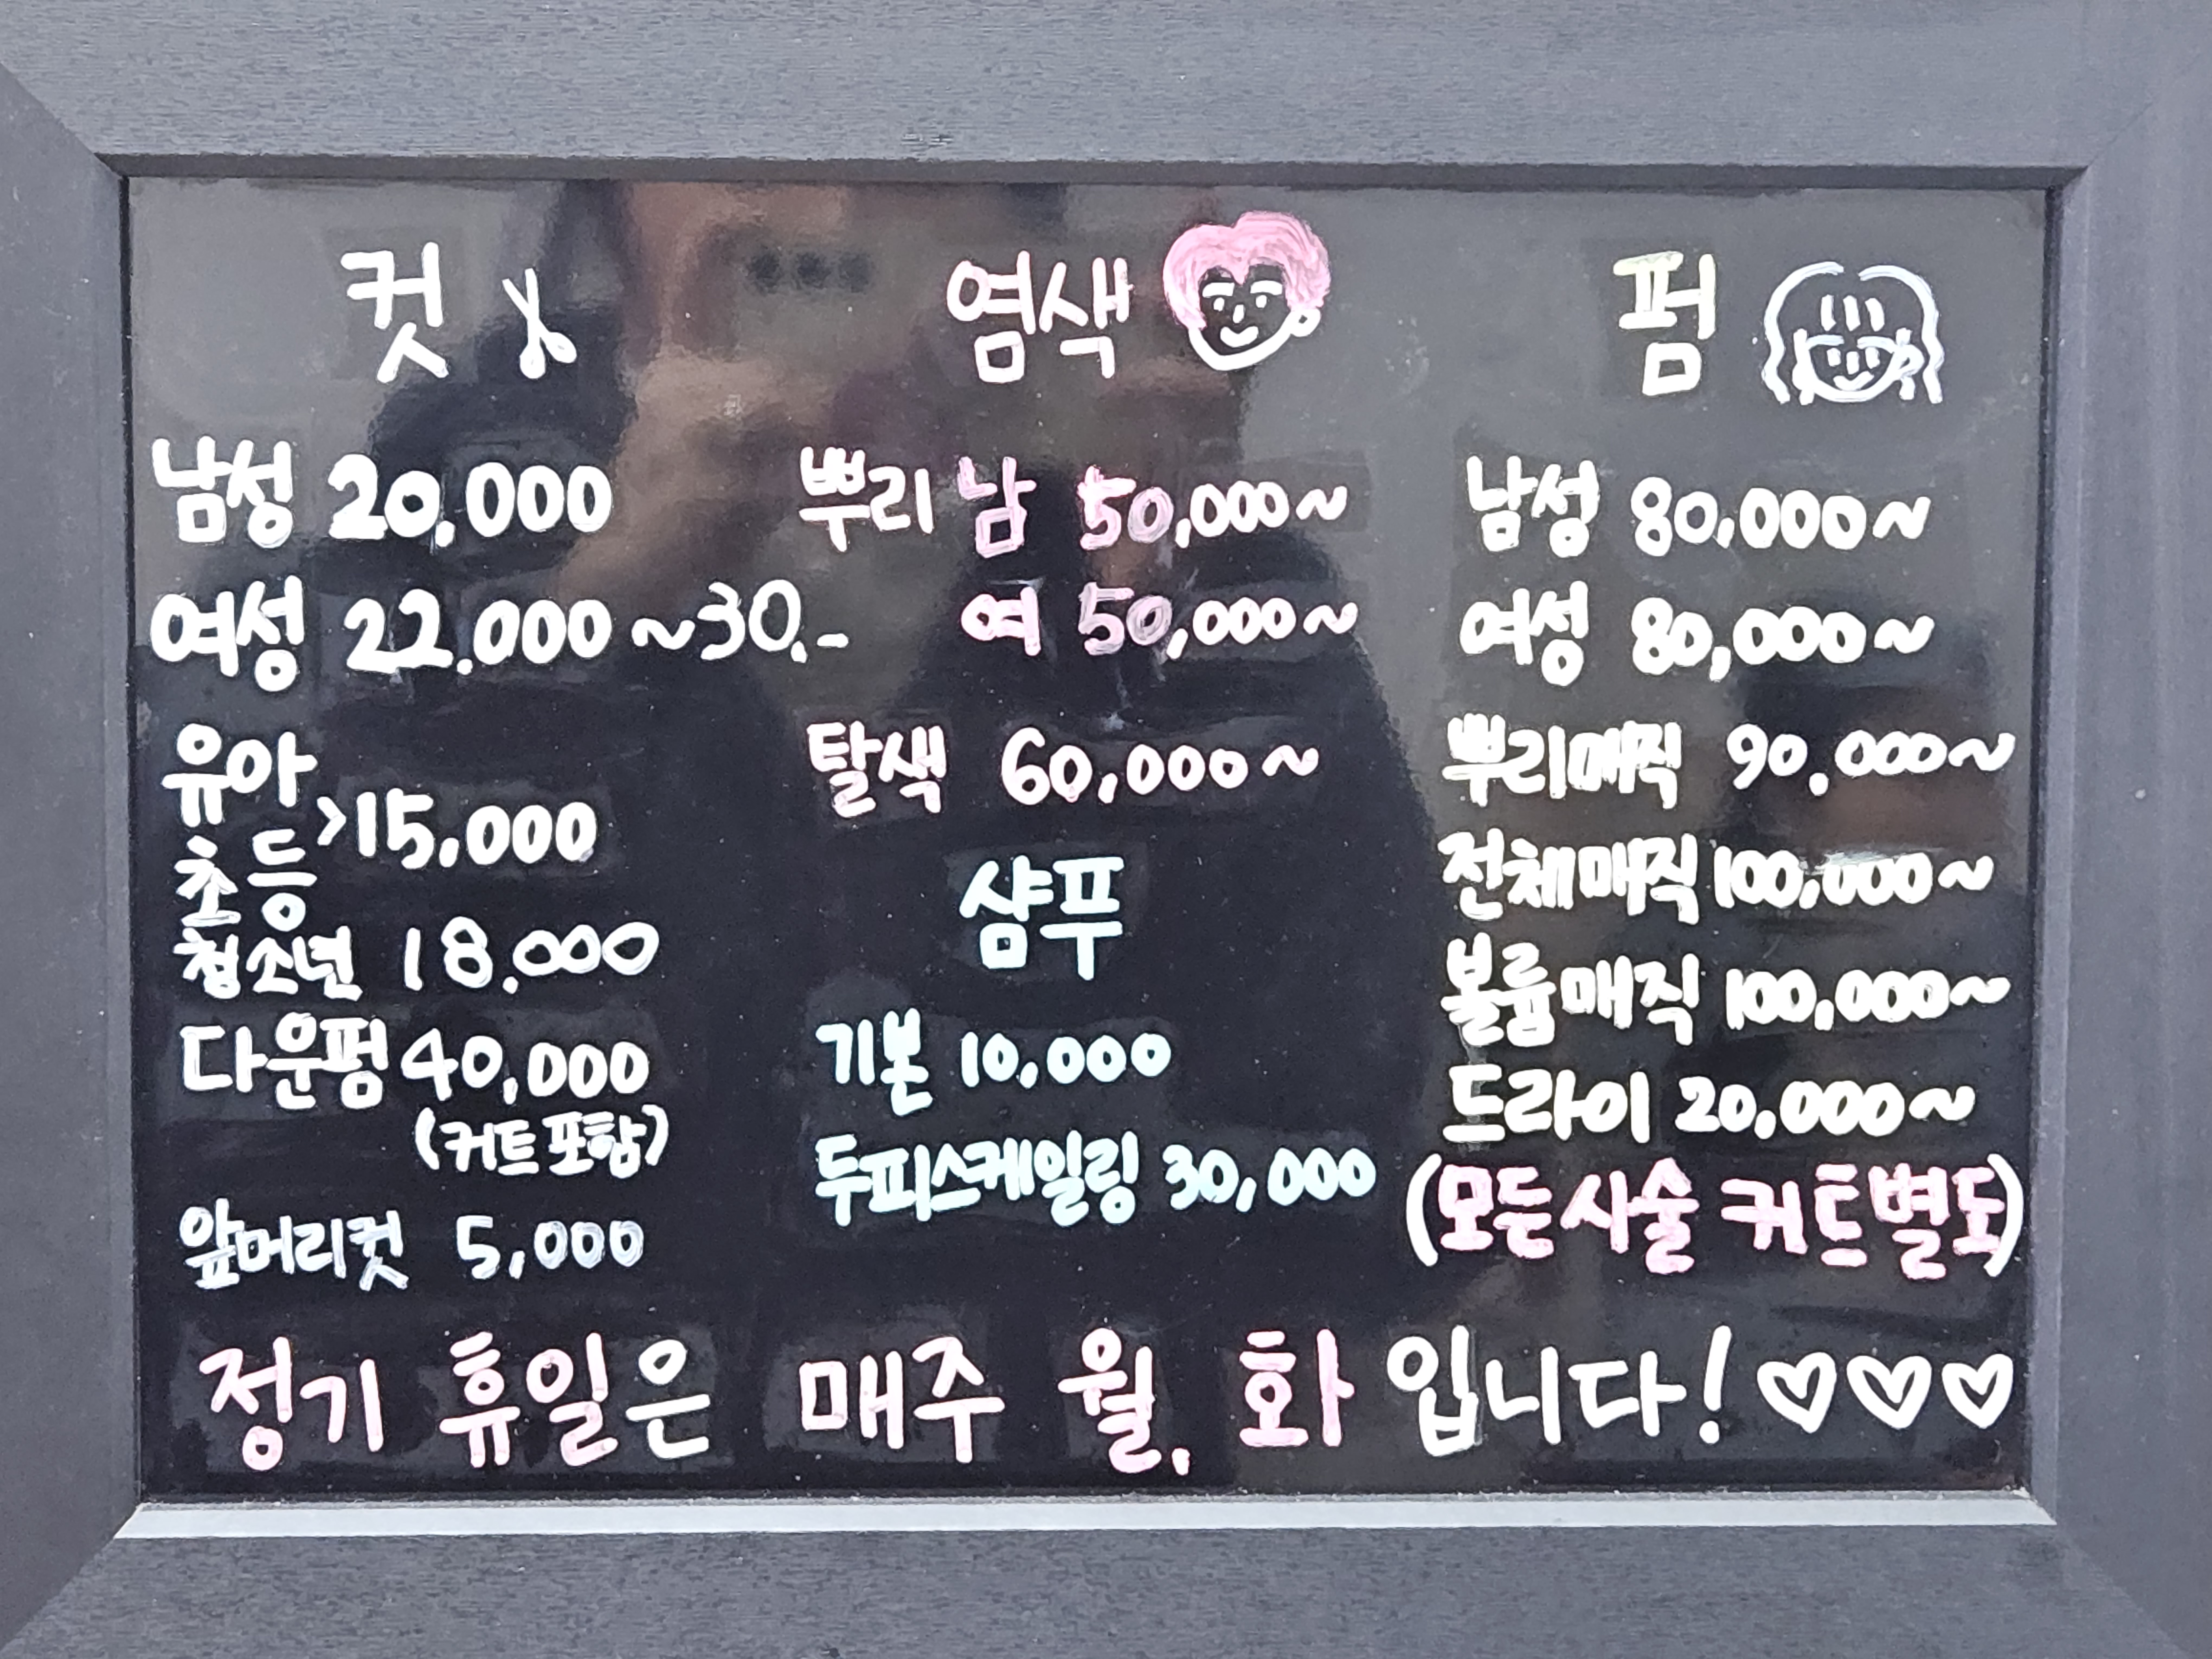 컷
남성 20,000
여성 22.000 ~30.-
유아
초등
>15,000
청소년 18.000
다운펌 40,000
(커트포함)
앞머리컷 5,000
염색
뿌리 남 50,000~
여 50,000~
탈색 60,000~
샴푸
기본 10,000
두피스케일링 30,000
펌
남성 80,000~
여성 80,000~
뿌리매직 90,000~
전체매직 100,000~
볼륨매직 100,000~
드라이 20,000~
(모든시술 커트별도)
정기 휴일은 매주 월, 화 입니다! ♡♡♡